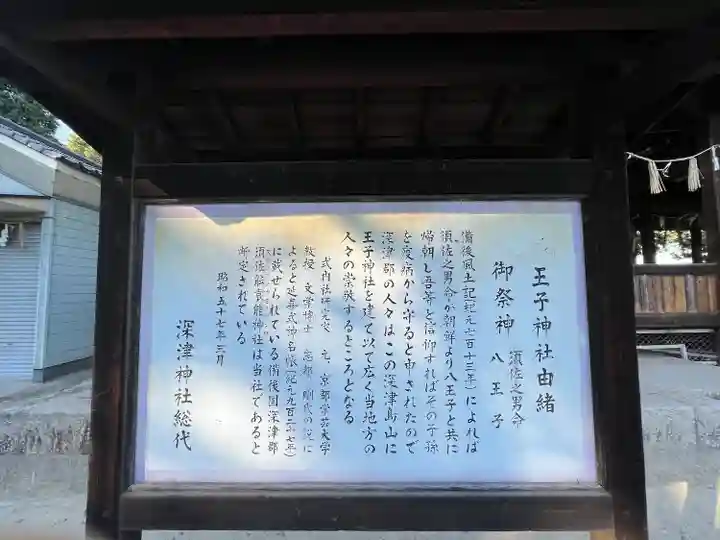 王子神社由緒
御祭神 須佐之男命
八王子
備後風土記(紀元七百十三年)によれば
須佐之男命が朝鮮より八王子と共に
帰朝し吾等を信仰すればその子孫
を疫病から守ると申されたので
深津郡の人々はこの深津島山に
王子神社を建て以て広く当地方の
人々の崇敬するところとなる
式内社研究家 元 京都学芸大学
教授 文学博士 志郎 剛氏の説に
よると延喜式神名帳(紀元九百二十七年)
に載せられている備後国深津郡
須佐能袁能神社は当社であると
断定されている
昭和五十七年三月
深津神社総代